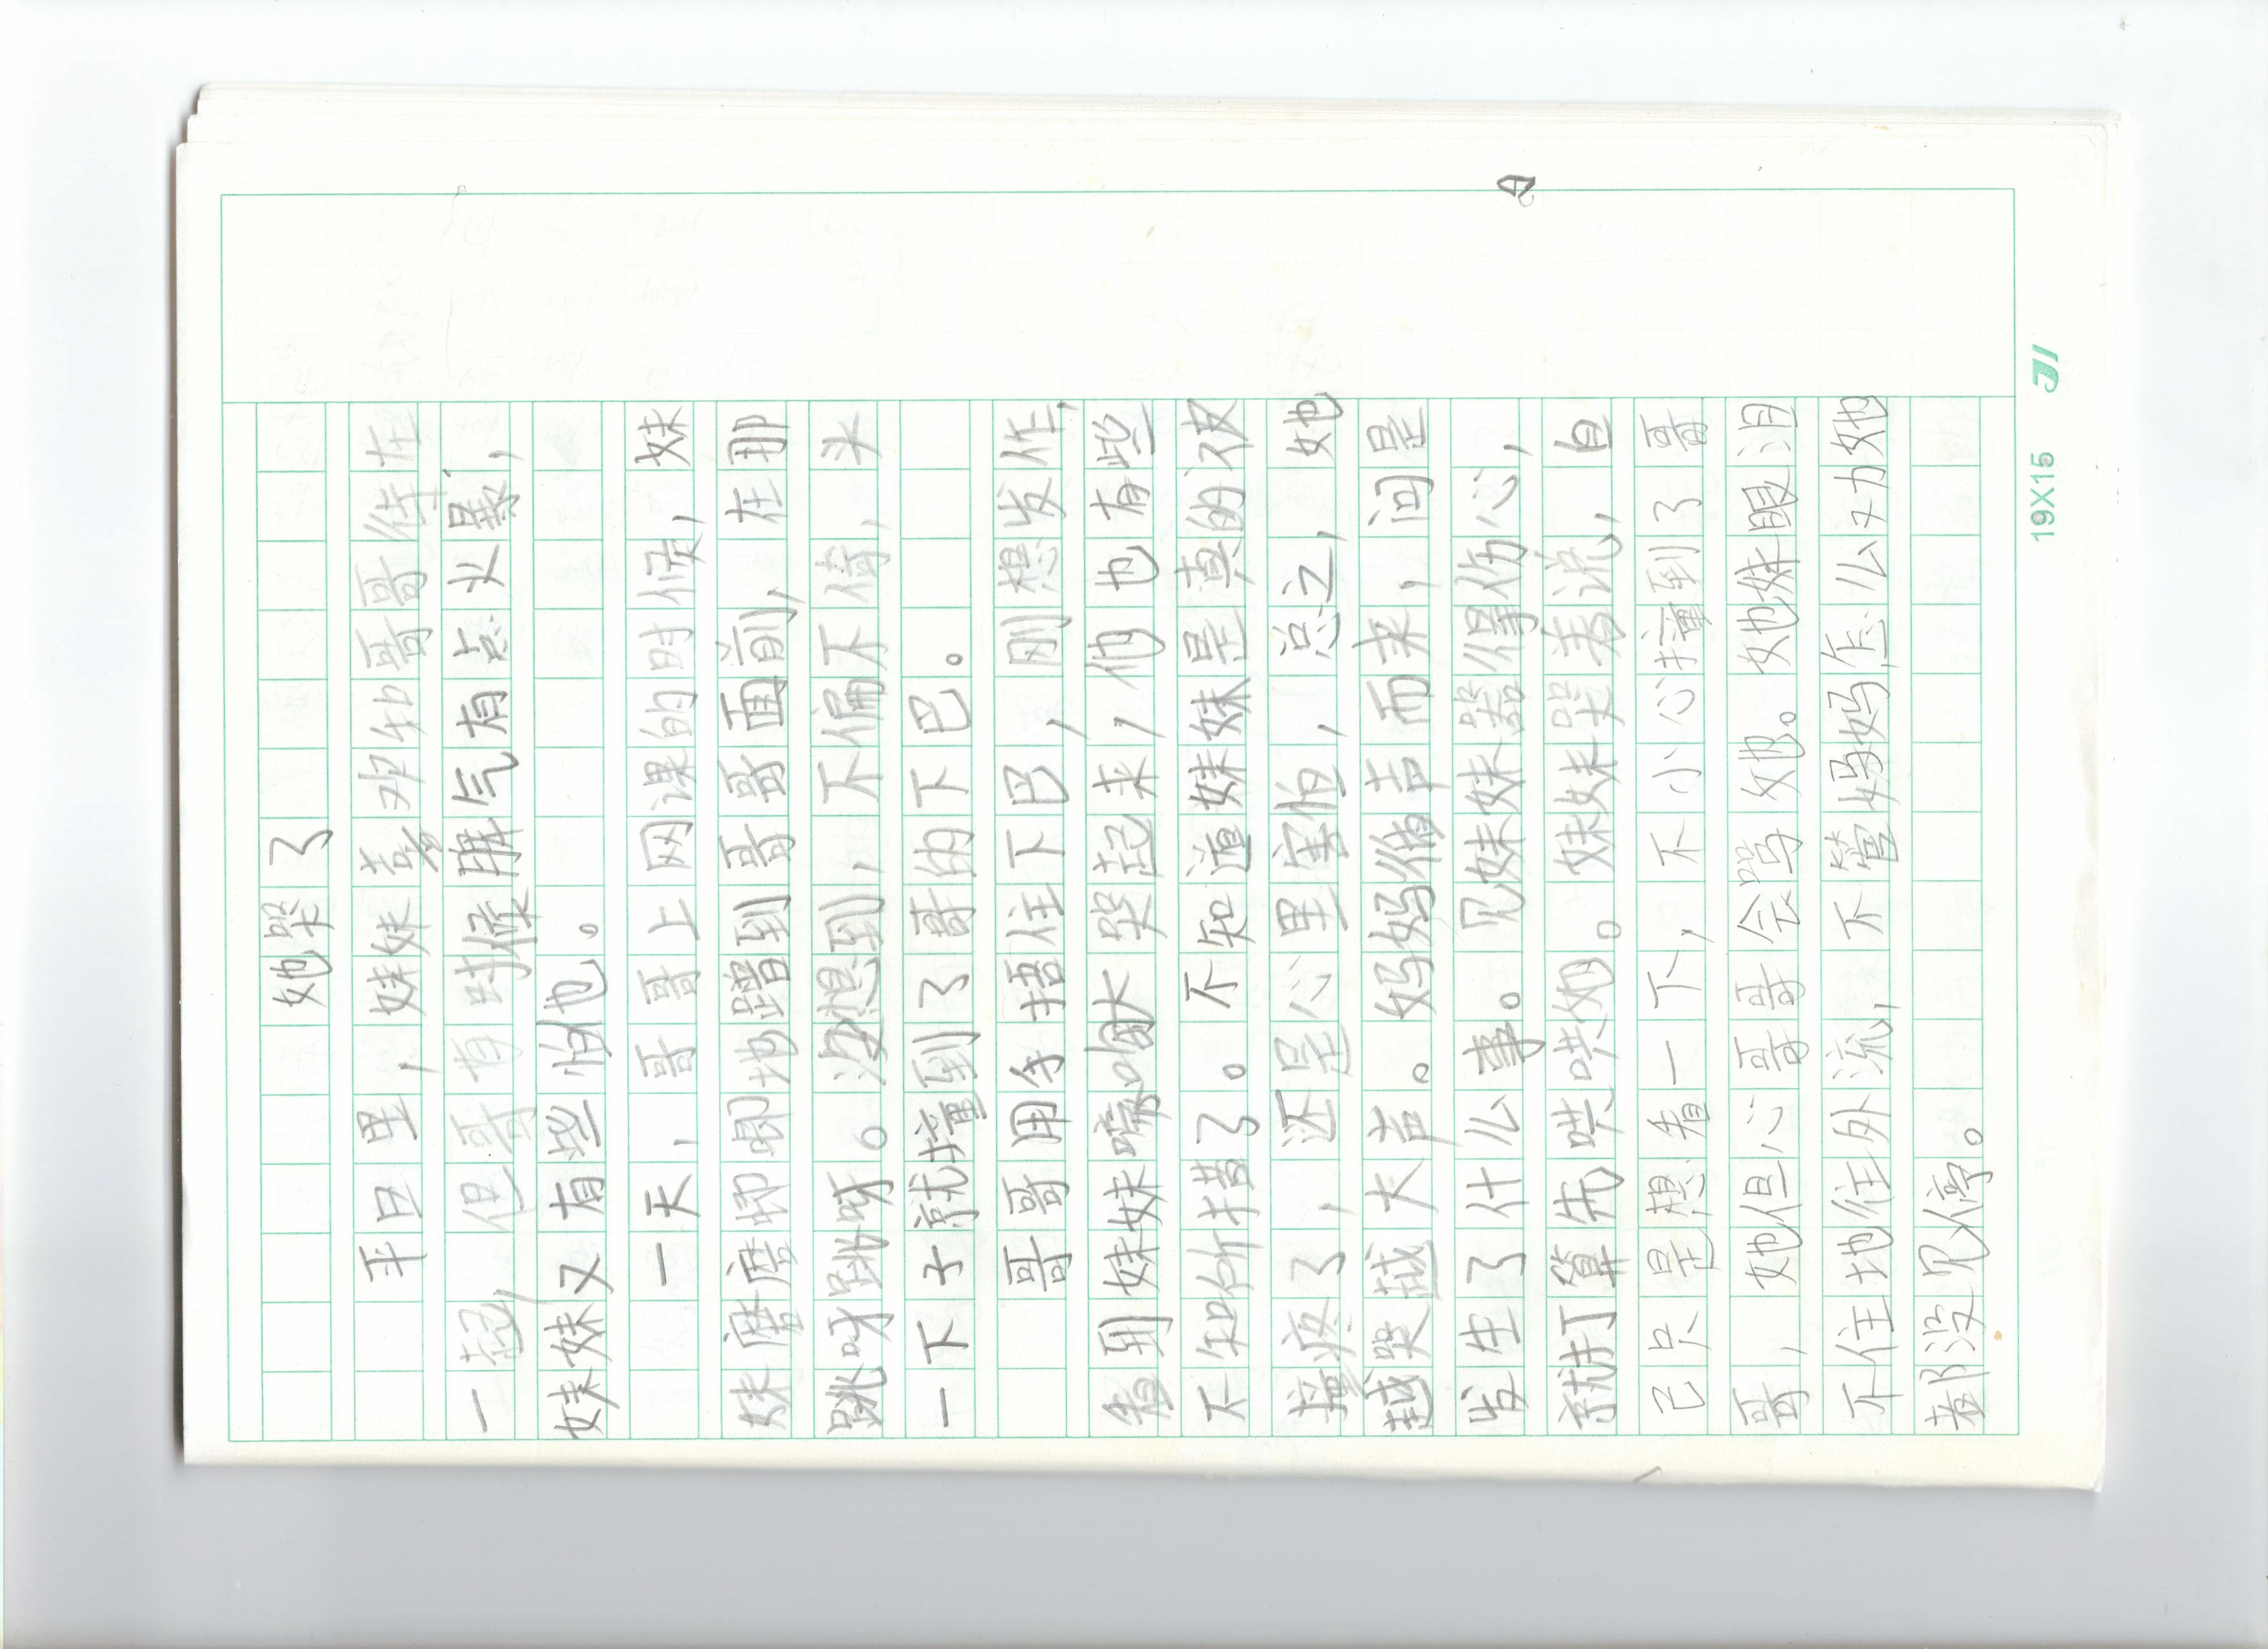 她哭了
平日里，妹妹喜欢和哥哥待在
一起，但哥有时候脾气有点火暴，
妹妹又有些怕他。
一天，哥哥上网课的时候，妹
妹磨磨唧唧地蹭到哥哥面前，在那
跳呀跳呀。没想到，不偏不倚，头
一下子就撞到了哥的下巴。
哥哥用手捂住下巴，刚想发作，
看到妹妹嚎啕大哭起来，他也有些
不知所措了。不知道妹妹是真的被
撞疼了，还是心里害怕，总之，她
越哭越大声。妈妈循声而来，问是
发生了什么事。见妹妹哭得伤心，
就打算先哄哄她。妹妹哭着说，自
己只是想看一下，不小心撞到了哥
哥，她但心哥哥会骂她。她妹眼泪
不住地往外流，不管妈妈怎么劝她
都没见停。
19X15